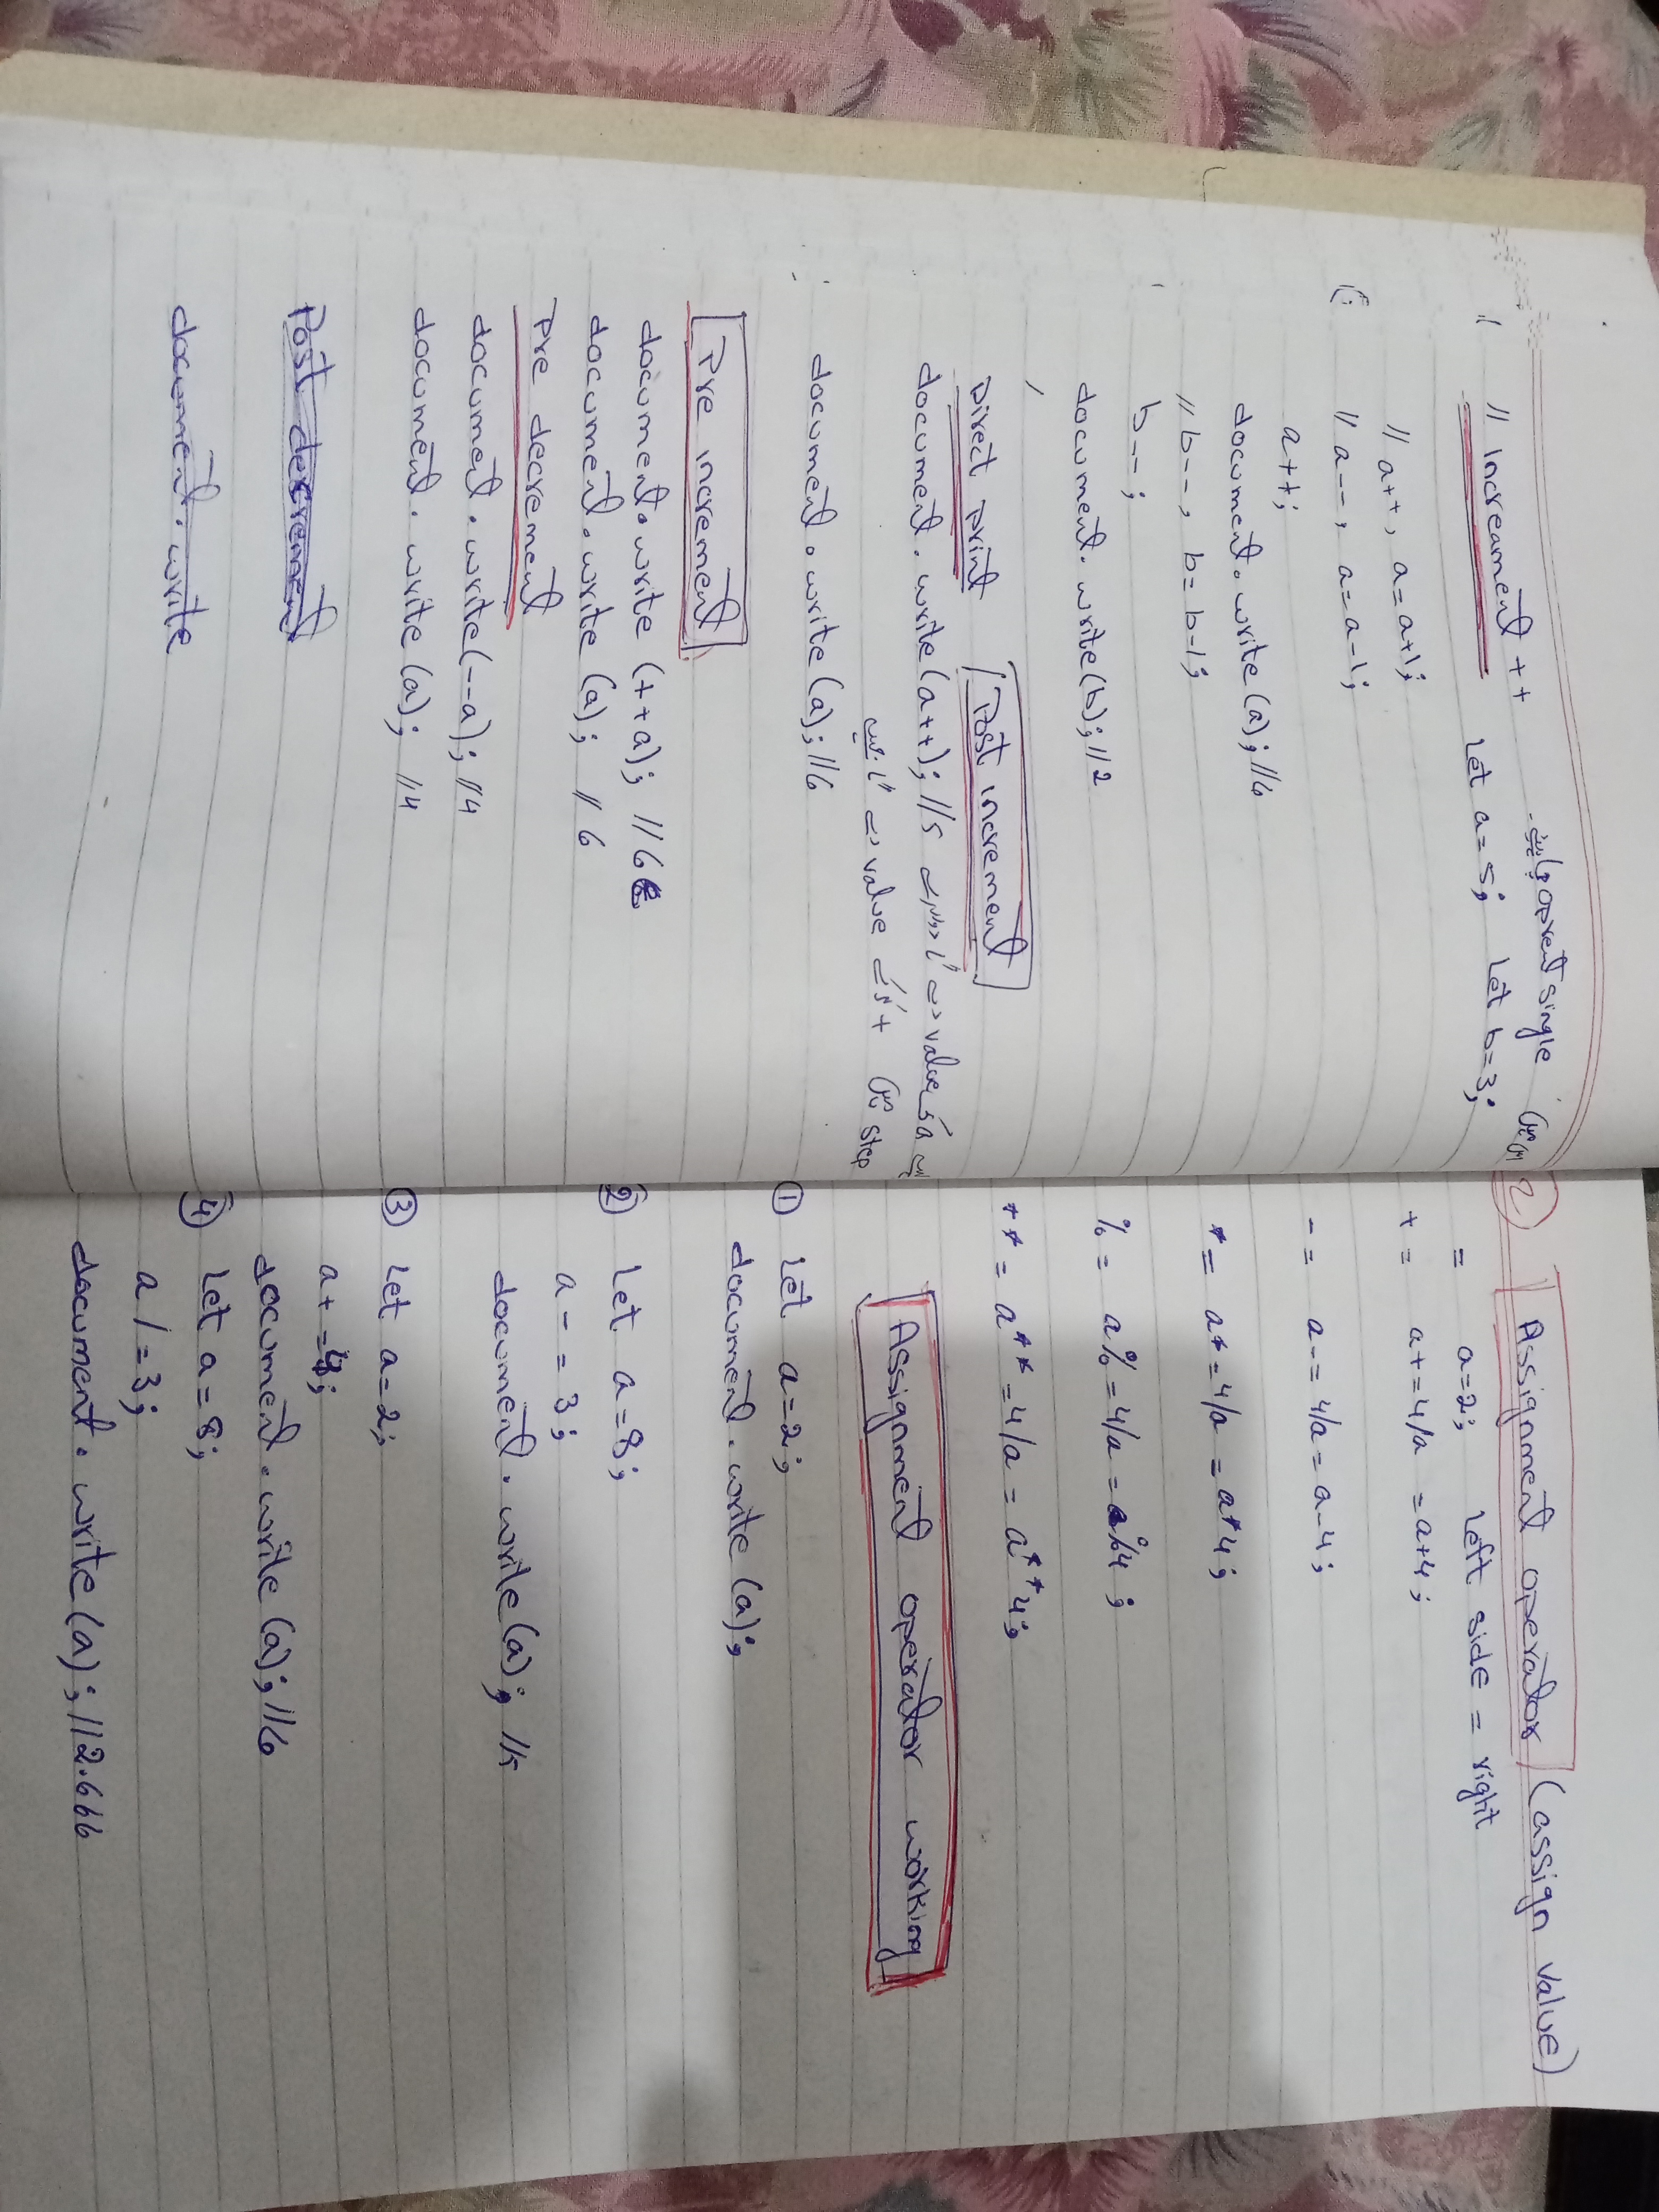 operet single
// Increament ++ Let a=5; Let b=3;
// a++, a=a+1;
// a--, a=a-1;
a++;
document.write(a); //6
// b--, b=b-1;
b--;
document.write(b); //2
Direct print Post increment
document.write(a++); //5 value
value + step
document.write(a); //6
Pre increment
document.write(++a); //6
document.write(a); //6
Pre decrement
document.write(--a); //4
document.write(a); //4
Post decrement
document.write
2) Assignment operator (assign value)
= a=2; left side = right
+= a+=4/a =a+4;
-= a-=4/a=a-4;
*= a*=4/a=a*4;
%= a%=4/a=a%4;
**= a**=4/a=a**4;
Assignment operator working
① Let a=2;
document.write(a);
② Let a=8;
a-=3;
document.write(a); //5
③ Let a=2;
a+=4;
document.write(a); //6
④ Let a=8;
a/=3;
document.write(a); //2.666